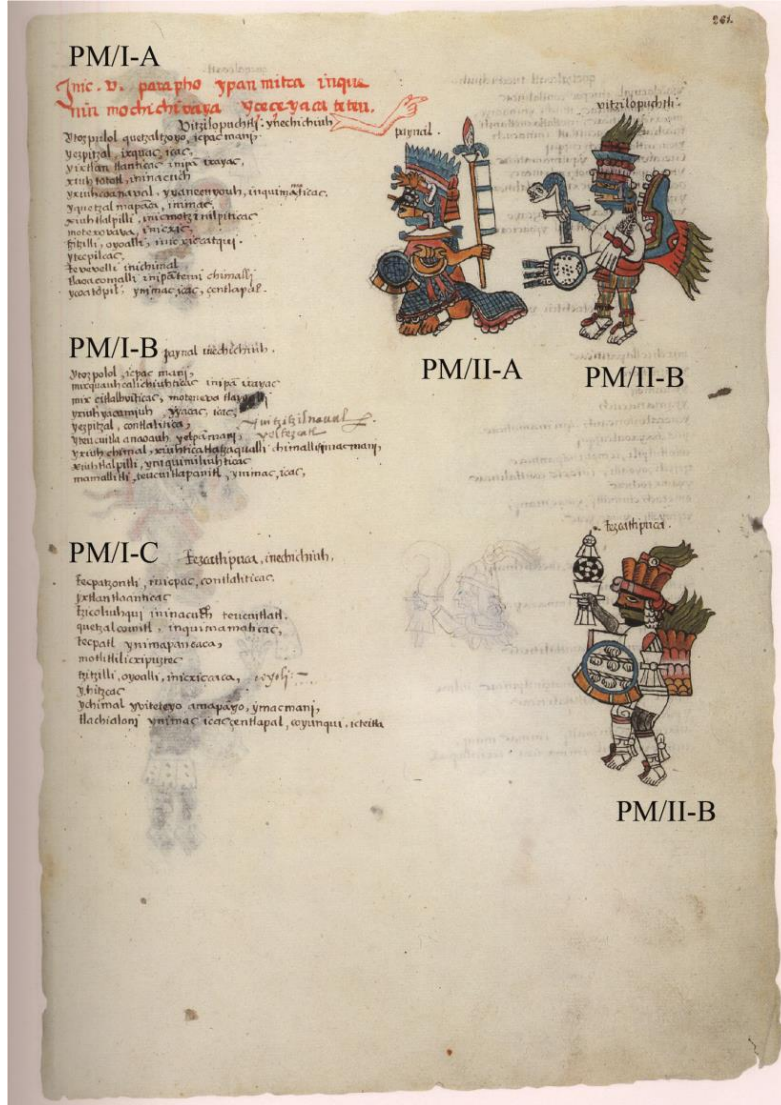 261.
PM/I-A
Jnic. v. parapho ypan mitoa inque
nin mochichivaya yceçeyaca teteu.
Vitzilopuchtli. ynechichiuh
Ytozpulol quetzaltzoyo, icpac mani,
yezpitzal, ixquac, icac,
yixtlan tlanticac inipā ixayac,
xiuhtototl, ininacuch
yxiuhcoanaval, yyancenyouh, inquimāmaticac.
yquetzal mapāca, inimac,
xiuhtlalpilli, inic motzinilpiticac
motexovava, inicxic,
tzitzilli, oyoalli, inicxic catqui.
ytecpilcac,
tevevelli inichimal
tlavaçomalli inipā temi chimalli
ycoatopil, ynimac, icac, çentlapal.
paynal.
vitzilopuchtli.
PM/II-A
PM/II-B
PM/I-B
paynal inechichiuh.
Ytozpolol, icpac mani,
mixquauhcalichiuhticac inipā ixayac
mix citlalhuiticac, moteneva tlaytzli
yxiuhyacamiuh yyacac, icac,
yezpitzal, contlaliticac,
yhuitzitzilnaval
yteucuitla anaoauh, yelpā mani,
yxiuh chimal, xiuhtica tlatzaqualli chimalli ymac mani,
xiuhtlalpilli, yniquimiliuhticac
mamalliti, teucuitlapanitl, ynimac, icac,
PM/I-C
tezcatlipuca, inechichiuh.
tecpatzontli, inicpac, contlaliticac,
yxtlan tlaanticac
tzicoliuhqui ininacuch teucuitlatl.
quetzalcomitl, inquimamaticac,
tecpatl ynimapancaca,
motlitlilicxipuztec
tzitzilli, oyoalli, inicxic caca,
ytzitzcac
ychimal yviteteyo amapāyo, ymac mani,
tlachialoni ynimac icac çentlapal, coyunqui,
tezcatlipuca.
PM/II-B